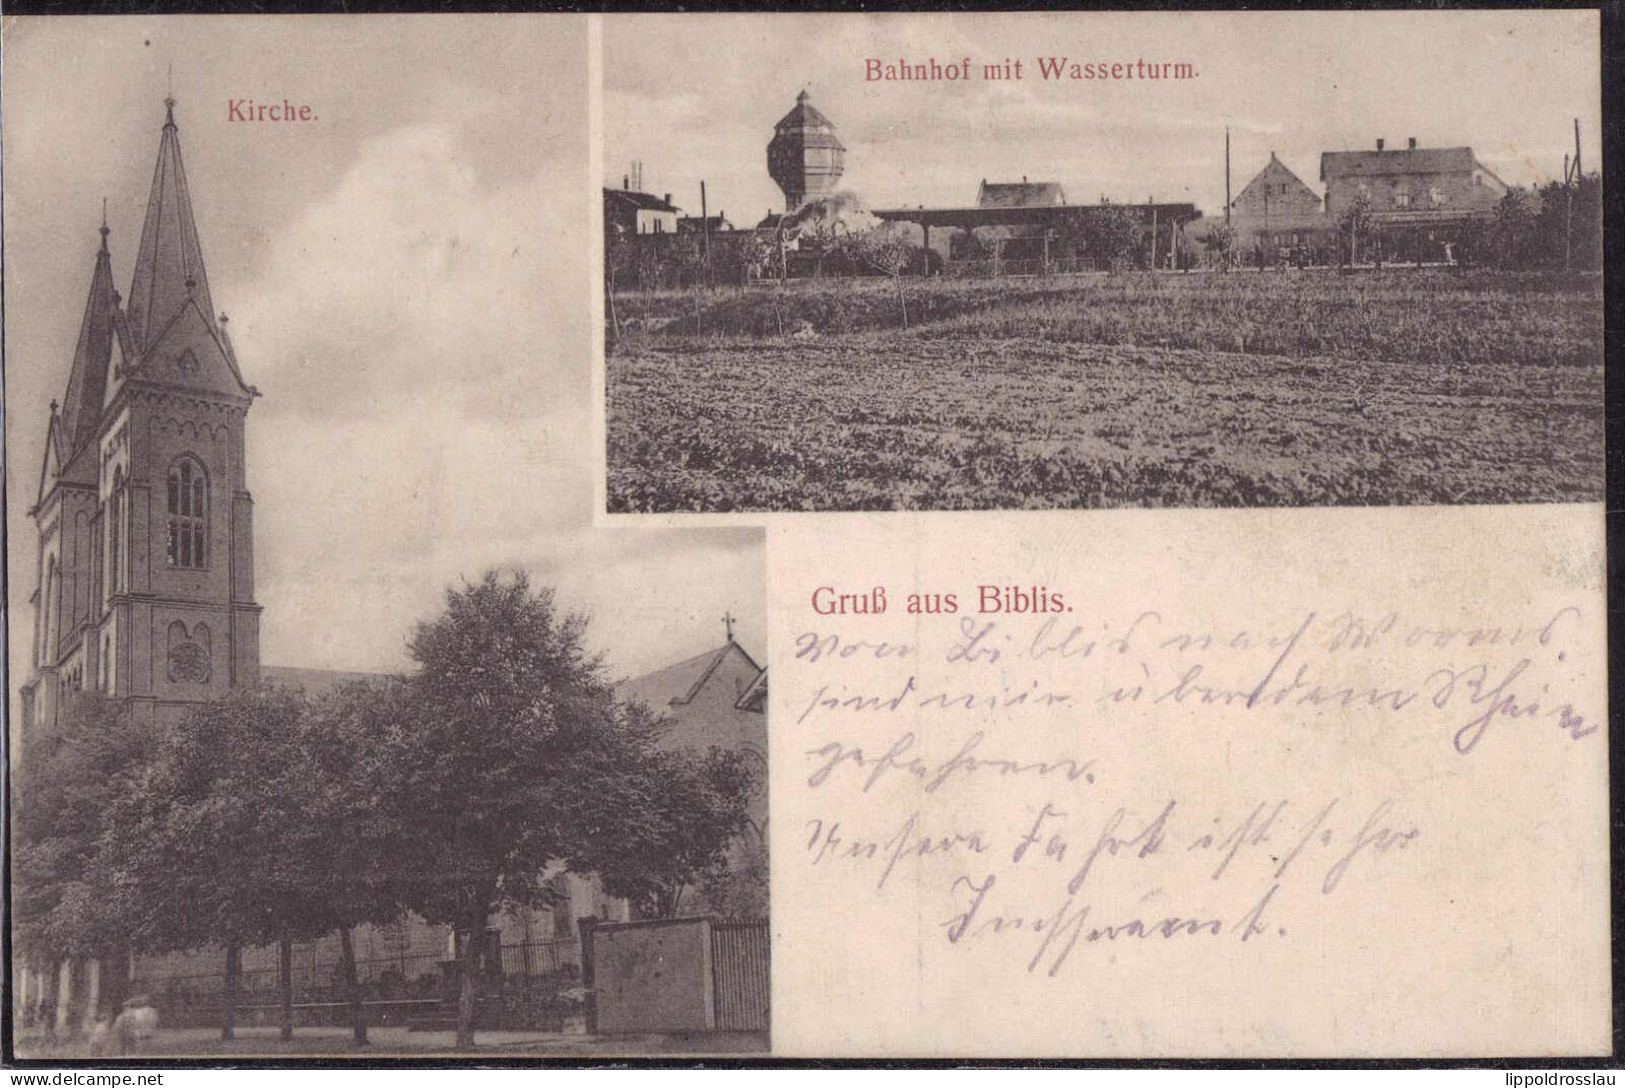 Kirche.
Bahnhof mit Wasserturm.
Gruß aus Biblis.
Von Biblis nach Worms,
sind wir über dem Rhein
gefahren.
Unsere Fahrt ist sehr
Intressant.
www.delcampe.net
lippoldrosslau